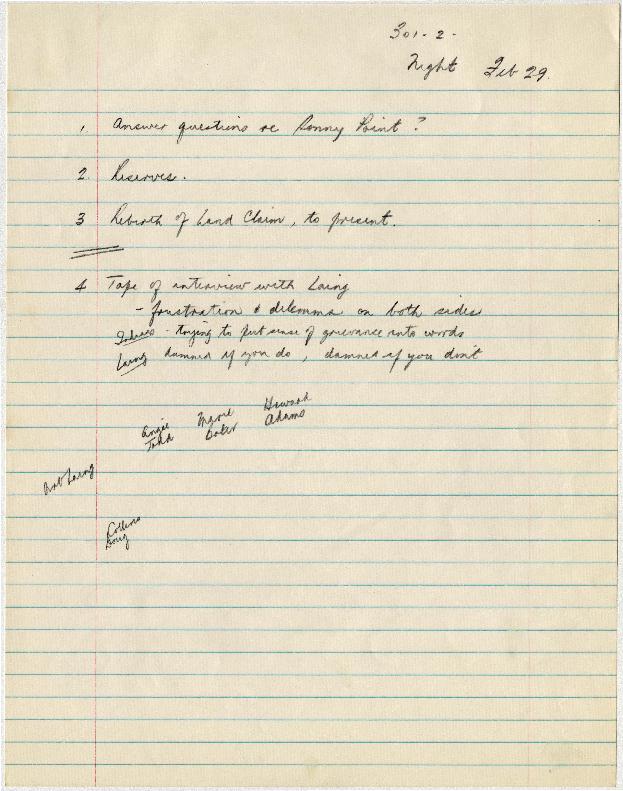 301-2-
Night Feb 29.
1. Answer questions re Ronny Point?
2. Reserves.
3 Rebirth of Land Claim, to present.
4 Tape of interview with Laing
- frustration & dilemma on both sides
- trying to put sense of grievance into words
Laing damned if you do, damned if you don't
Howard
Adams
Laing
Collins
Doug